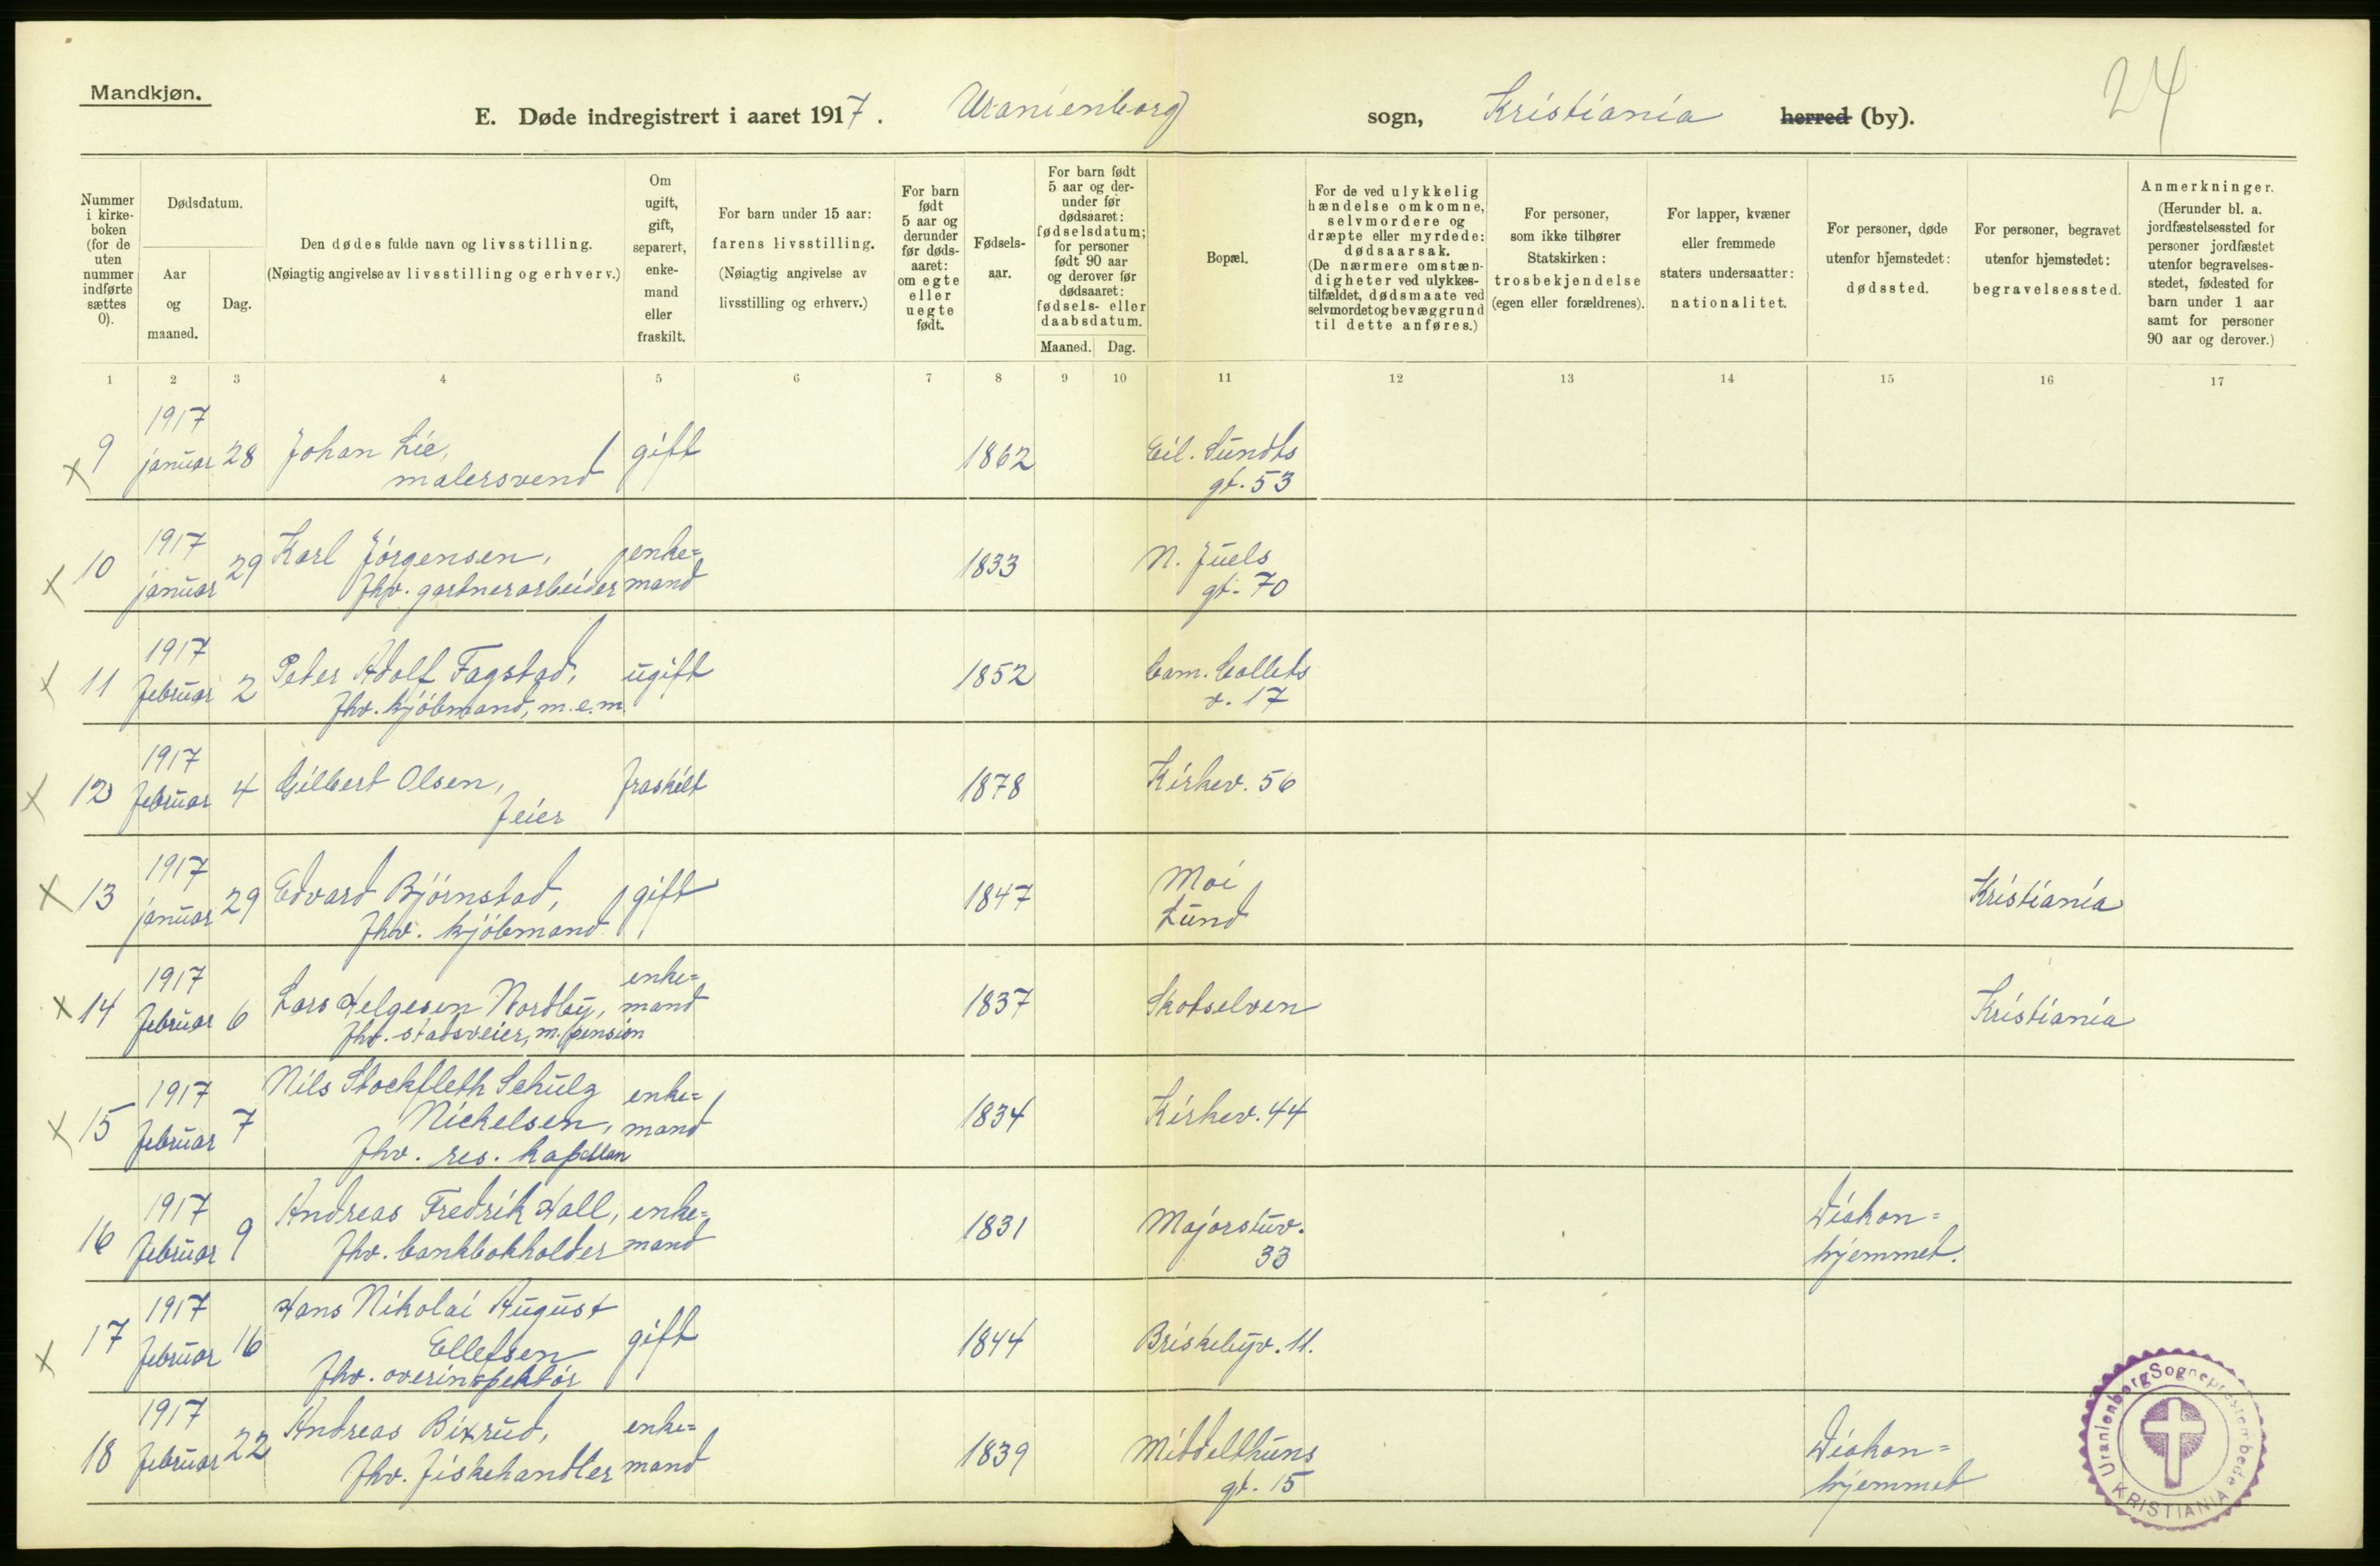 24
Mandkjøn.
E. Døde indregistrert i aaret 1917. Uranienborg sogn, Kristiania herred (by).
Nummer i kirke- boken (for de uten nummer indførte sættes 0).
Dødsdatum.
Aar og maaned.
Dag.
Den dødes fulde navn og livsstilling.
(Nøiagtig angivelse av livsstilling og erhverv.)
Om ugift, gift, separert, enke- mand eller fraskilt.
For barn under 15 aar:
farens livsstilling.
(Nøiagtig angivelse av
livsstilling og erhverv.)
For barn født 5 aar og derunder før døds- aaret: om egte eller uegte født.
Fødsels- aar.
For barn født 5 aar og der- under før dødsaaret: fødselsdatum; for personer født 90 aar og derover før dødsaaret: fødsels- eller daabsdatum.
Maaned. Dag.
Bopæl.
For de ved ulykkelig hændelse omkomne, selvmordere og dræpte eller myrdede: dødsaarsak. (De nærmere omstæn- digheter ved ulykkes- tilfældet, dødsmaate ved selvmordet og bevæggrund til dette anføres.)
For personer, som ikke tilhører Statskirken: trosbekjendelse (egen eller forældrenes).
For lapper, kvæner eller fremmede staters undersaatter: nationalitet.
For personer, døde utenfor hjemstedet: dødssted.
For personer, begravet utenfor hjemstedet: begravelsessted.
Anmerkninger. (Herunder bl. a. jordfæstelsessted for personer jordfæstet utenfor begravelses- stedet, fødested for barn under 1 aar samt for personer 90 aar og derover.)
1 2 3 4 5 6 7 8 9 10 11 12 13 14 15 16 17
1917
x 9 januar 28 Johan Lie, gift 1862 Eil. Sundts
malersvend gt. 53
1917
x 10 januar 29 Karl Jörgensen, enke= 1833 N. Juels
fhv. gartnerarbeider mand gt. 70
1917
x 11 februar 2 Peter Adolf Fagstad, ugift 1852 Cam. Colletts
fhv. kjöbmand, m.e.m. v. 17
1917
x 12 februar 4 Gilbert Olsen, fraskilt 1878 Kirkev. 56
feier
1917
x 13 januar 29 Edvard Björnstad, gift 1847 Moi Kristiania
fhv. kjöbmand Lund
1917 enke=
x 14 februar 6 Lars Helgesen Nordby, mand 1837 Skotselven Kristiania
fhv. stadsveier, m. pension
1917 Nils Stockfleth Schulz enke=
x 15 februar 7 Nickelsen, mand 1834 Kirkev. 44
fhv. res. kapellan
1917 Andreas Fredrik Hall, enke= 1831 Majorstuv. Diakon=
16 februar 9 fhv. bankbokholder mand 33 hjemmet.
1917 Hans Nikolai August
x 17 februar 16 Ellefsen gift 1844 Briskebyv. 11.
fhv. overinspektör
1917 Andreas Bixrud, enke=
18 februar 22 fhv. fiskehandler mand 1839 Middelthuns Diakon=
gt. 15 hjemmet
Uranienborg Sogneprestembede
KRISTIANIA